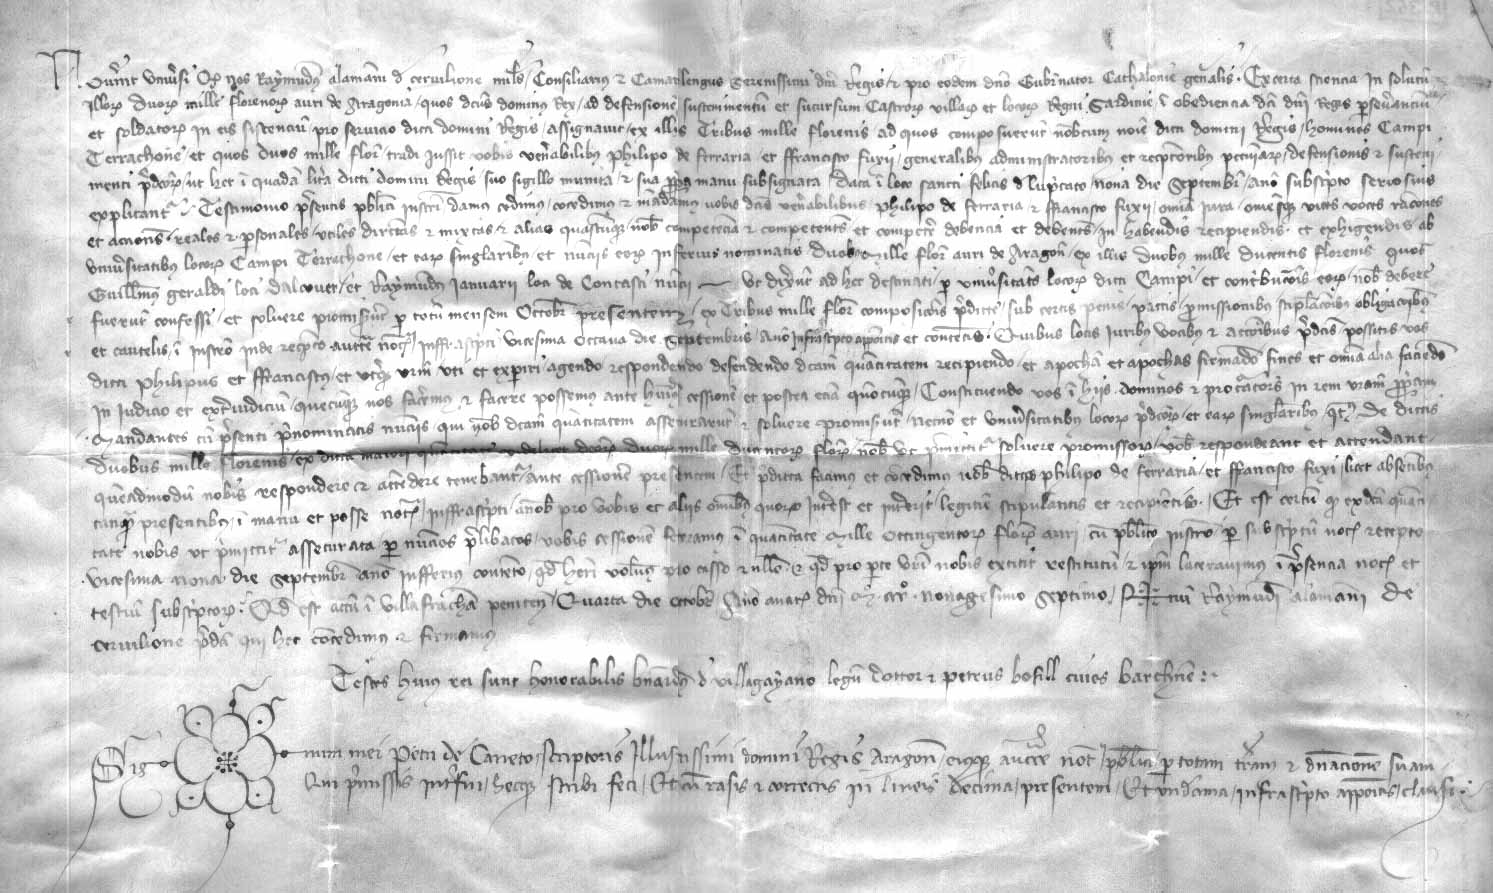 Noverint universi Qd nos Raymundus alamāni d cervilione miles Consiliarius & Camarlengus Serenissimi dni Regis & pro eodem dno Gubernator Cathalonie genalis. Ex certa sciencia In solutū
Illorꝝ duorꝝ mille florenorꝝ auri de Aragonia quos dcus dominus Rex ad defensionē sustenimentū et sucursum Castrorꝝ villarꝝ et locorꝝ Regni Sardinie ī obediencia dci dni Regis psevanciū
et soldatorꝝ in eis sistenciū pro servicio dicti domini Regis assignavit ex illis Tribus mille florenis ad quos composuerūt nobcum noīe dicti domini Regis homines Campi
Terrachone et quos duos mille flor tradi iussit vobis venabilibus philipo de ferraria et ffrancisco fuxii generalibus administratoribus et receptoribus pecuniarꝝ defensionis & susteni
menti pdcorꝝ ut hec ī quadā lita dicti domini Regis suo sigillo munita & sua ppa manu subsignata data ī loco sancti felicis d lupcato nona die Septembr anō subscripto seriosius
explicantr Testimonio psentis pblici instri damus cedimus cōcedimus & mādamus vobis dcis venabilibus philipo de ferraria & ffrancisco fuxii omīa iura omesqꝫ vices voces racōnes
et acciones reales & psonales utiles directas & mixtas & alias quascūqꝫ nob competēcia & competentes et competere debencia et debentes in habendis recipiendis et exhigendis ab
univsitatibus locorꝝ Campi Terrachone et earꝝ singlaribus et nūciis eorꝝ inferius nominatis duobus mille flor auri de Aragon ex illis duobus mille ducentis florenis quos
Guillmus geraldi loci dalcover et Raymundus Januarii loci de Constanti nūcii ut dixerūt ad hec destinati p univsitates locorꝝ dicti Campi et contribucōis eorꝝ nob debere
fuerūt confessi et solvere promiserūt p totū mensem Octobr presentem ex Tribus mille flor composicōis pdicte sub certis penis pactis promissionibus stiplacōibus obligacōibus
et cautelis ī instro inde recepto aucte noty infrascripti vicesima octava die Septembris anō infrascripto apposito et contentis Quibus locis iuribus vocibus & accōibus pdcis possitis vos
dicti philipus et ffranciscus et uterqꝫ vrm uti et experiri agendo respondendo defendendo dcam quātitatem recipiendo et apochā et apochas firmādo fines et omīa alia faciendo
In iudicio et extra iudiciū quecūqꝫ nos facemus & facere possemus ante huius cessionē et postea eciā quōcūqꝫ Constituendo vos ī hiis dominos et procatores in rem vram ppam
Mandantes cū psenti pnominatis nūciis qui nob dcam quātitatem assecurarūt & solvere promiserūt necnō et univsitatibus locorꝝ pdcorꝝ et earꝝ singlaribus De dictis
duobus mille florenis ex dicta maiori quātitate dcorꝝ duorꝝ mille ducentorꝝ florꝝ nob ut pmittitr solvere promissorꝝ vob respondeant et attendant
quēadmodū nobis respondere & attēdere tenebantr ante cessionē presentem Et pdicta facimus et cōcedimus vob dictis philipo de ferraria et ffrancisco fuxi licet absētibus
tanqꝫ presentibus ī manu et posse noty infrascripti a nob pro vobis et aliis omibus quorꝝ intest et interit legitime stipulantis et recipiētis Et est certū qd ex dcā quāti
tate nobis ut pmittitr assecurata p nūcios plibatos vobis cessionē feceramus ī quātitate mille octingentorꝝ florꝝ auri cū pblico instro p subscriptū noty recepto
vicesima nona die Septembr anō infferius contento qd heri volumus pro casso & nullo & qd pro parte vra nobis extitit restitutū & ipm laceravimus ī psencia noty et
testiū subscriptorꝝ Qd est actū ī Villafranchā penitens Quarta die octobr Anō a nat dni M ccc nonagesimo septimo Signū Raymundi alamāni de
cervilione pdci qui hec cōcedimus & firmamus
Testes huius rei sunt honorabilis bnardus d villagayano legū doctor & petrus bofill cives barchne
Sig num mei Petri de Caneto scriptoris Illustrissimi domini Regis Aragon eiusqꝫ aucte not publici p totam terrā & dnacione suam
Qui pmissis intfui hecqꝫ scribi feci Et cū rasis & correctis in lineis decima presentem Et undecima infrascripto appositis clausi